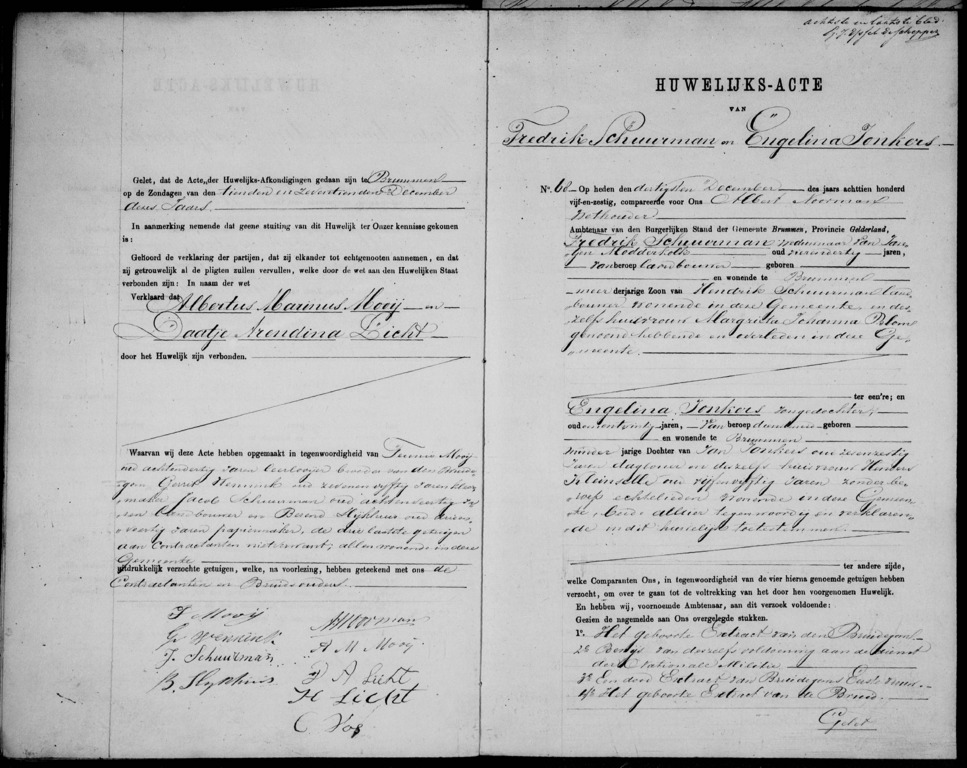 Gelet, dat de Acten der Huwelijks-Afkondigingen gedaan zijn te Brummen
op de Zondagen van den tienden en zeventienden December
dezes Jaars
In aanmerking nemende dat geene stuiting van dit Huwelijk ter Onzer kennisse gekomen
is:
Gehoord de verklaring der partijen, dat zij elkander tot echtgenooten aannemen, en dat
zij getrouwelijk al de pligten zullen vervullen, welke door de wet aan den Huwelijken Staat
verbonden zijn: In naam der wet
Verklaard dat
Albertus Marinus Mooij en
Daatje Arendina Licht
door het Huwelijk zijn verbonden.
Waarvan wij deze Acte hebben opgemaakt in tegenwoordigheid van Teunis Mooij
oud achtendertig Jaren leerlooijer broeder van den Bruide-
gom Gerrit oud zevenenvyftig Jaren kleer
maker Jacob Schuurman oud achtenveertig Ja-
ren landbouwer en Berend Slijkhuis oud drieen-
veertig Jaren papiermaker, de drie laatste getuigen
aan Contractanten niet verwant; allen wonende in deze
Gemeente
uitdrukkelijk verzochte getuigen, welke, na voorlezing, hebben geteekend met ons de
Contractanten en Bruids ouders.
T Mooij
G
J. Schuurman
B. Slijkhuis
A Noorman
A M Mooij
D A Licht
H Licht
C Vos
achtste en laatste blad.
HUWELIJKS-ACTE
VAN
Fredrik Scheuerman en Engelina Jonkers
N°. 60 Op heden den dertigsten December des jaars achttien honderd
vijf-en-zestig, compareerde voor Ons Albert Noorman
Wethouder
Ambtenaar van den Burgerlijken Stand der Gemeente Brummen, Provincie Gelderland,
Fredrik Scheuerman weduwnaar van Jan-
oud jaren,
van beroep landbouwer geboren
en wonende te Brummen
meerderjarige Zoon van Hendrik Scheuerman land-
bouwer wonende in deze Gemeente en des-
zelfs huisvrouw Margrieta Johanna
gewoond hebbende en overleden in deze Ge-
meente.
ter een're; en
Engelina Jonkers jongedochter,
oud jaren, van beroep geboren
en wonende te Brummen
minder jarige Dochter van Jan Jonkers oud zevenzestig
Jaren daglooner en deszelfs huisvrouw
oud vijfenvyftig Jaren zonder be-
roep echtelieden wonende in deze Gemeen-
te alhier tegenwoordig en verklaren-
de in dit huwelijk toetestemmen.
ter andere zijde,
welke Comparanten Ons, in tegenwoordigheid van de vier hierna genoemde getuigen hebben
verzocht, om over te gaan tot de voltrekking van het door hen voorgenomen Huwelijk.
En hebben wij, voornoemde Ambtenaar, aan dit verzoek voldoende:
Gezien de nagemelde aan Ons overgelegde stukken.
1e. Het geboorte Extract van den Bruidegom.
2e Bewijs van deszelfs voldoening aan de dienst
der Nationale Militie
3e Een dood Extract van Bruidegoms Eerste vrouw.
4e Het geboorte Extract van de Bruid.
Gelet